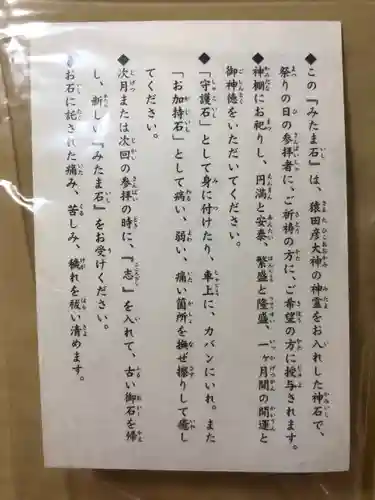 ◆この『みたま石』は、猿田彦大神の神霊をお入れした神石で、
祭りの日の参拝者に、ご祈祷の方に、ご希望の方に授与されます。
◆神棚にお祀りし、円満と安泰、繁盛と隆盛、一ヶ月間の開運と
御神徳をいただいてください。
◆「守護石」として身に付けたり、車上に、カバンにいれ。また
「お加持石」として病い、弱い、痛い箇所を撫ぜ擦りして癒し
てください。
◆次月または次回の参拝の時に、『志』を入れて、古い御石を帰
し、新しい『みたま石』をお受けください。
お石に託された痛み、苦しみ、穢れを祓い清めます。